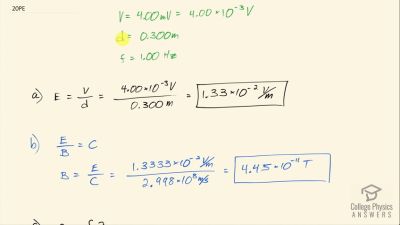 20PE
V = 4.00mV = 4.00·10⁻³V
d = 0.300m
f = 1.00 Hz
a) E = V/d = 4.00·10⁻³V/0.300m = 1.33·10⁻² V/m
b) E/B = C
B = E/C = 1.3333·10⁻² V/m / 2.998·10⁸ m/s = 4.45·10⁻¹¹ T
College Physics
ANSWERS